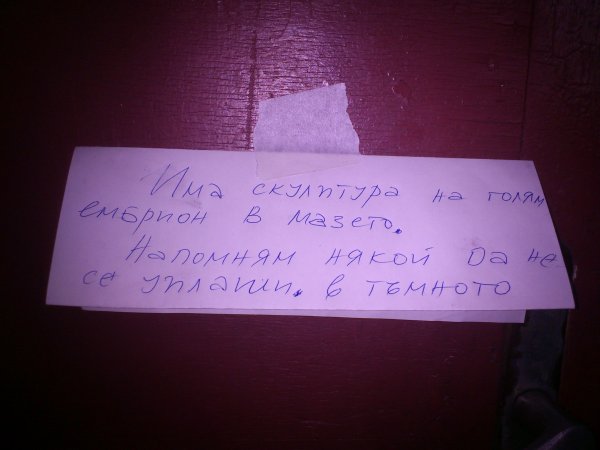 Има скулптура на голям
ембрион в мазето.
Напомням някой да не
се уплаши. в тъмното